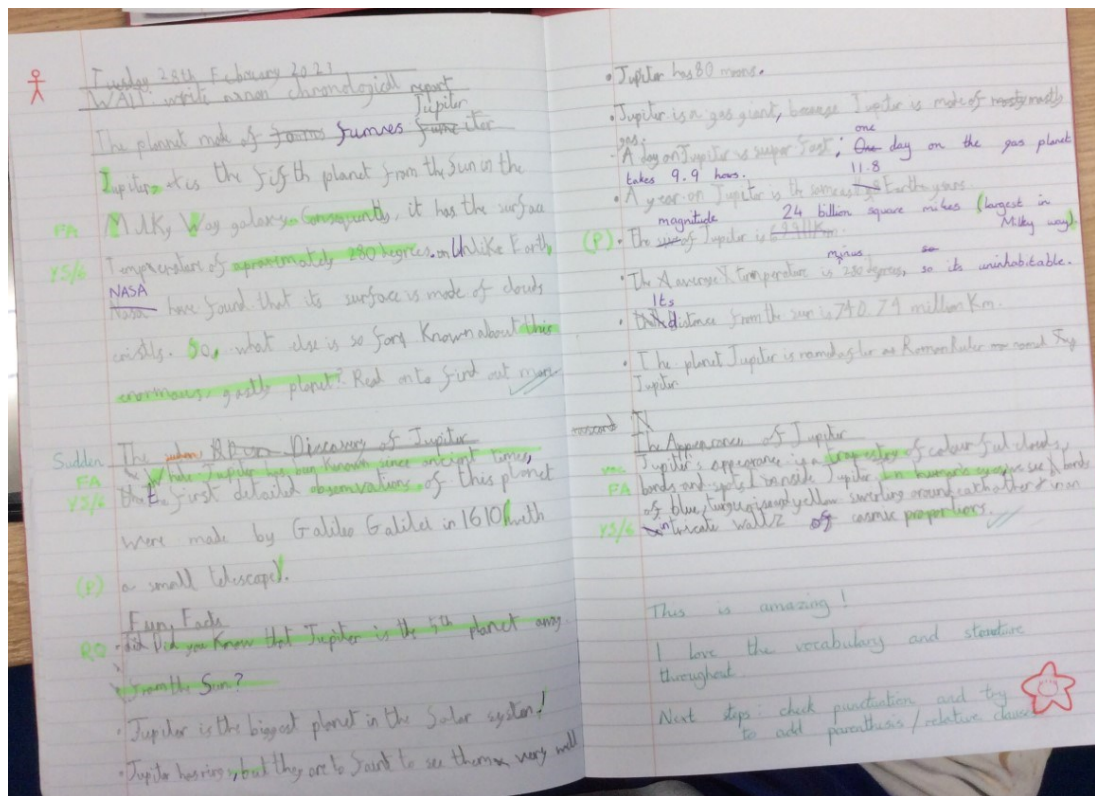 Tuesday 28th February 2023
WALT: write a non chronological report
Jupiter
The planet made of fumes
Jupiter, it is the fifth planet from the Sun in the
FA Milky Way galaxy. Consequently, it has the surface
Y5/6 Temperature of aproximately 280 degrees. Unlike Earth,
NASA
have found that its surface is made of clouds
So, what else is so far Known about this
enormous, gastly planet? Read on to find out more
The Discovery of Jupiter
Sudden While Jupiter has been Known since ancient times,
FA
Y5/6 the first detailed observations of this planet
were made by Galileo Galilei in 1610 (with
(P) a small telescope).
Funy Facts
RQ • Did you Know that Jupiter is the 5th planet away
from the Sun?
• Jupiter is the biggest planet in the Solar system!
• Jupiter has rings, but they are to faint to see them very well
• Jupiter has 80 moons.
• Jupiter is a gas giant, because Jupiter is made of mostly
gas;
one
• A day on Jupiter is super fast; day on the gas planet
takes 9.9 hours.
11.8
• A year on Jupiter is the same as Earth years.
magnitude 24 billion square miles (largest in
Milky way)
(P) • The of Jupiter is
minus
• The average temperature is 280 degrees, so its uninhabitable.
Its
• distance from the sun is 740.74 million Km.
• The planet Jupiter is named after a Roman Ruler
Jupiter
The Appearance of Jupiter
Jupiter's appearance is a tapestry of colourful clouds,
FA bands and spots. Inside Jupiter human eyes see bands
of blue, turquoise and yellow swirling around each other in an
Y5/6 intricate waltz of cosmic proportions.
This is amazing!
I love the vocabulary and structure
throughout.
Next steps: check punctuation and try
to add parenthesis / relative clause